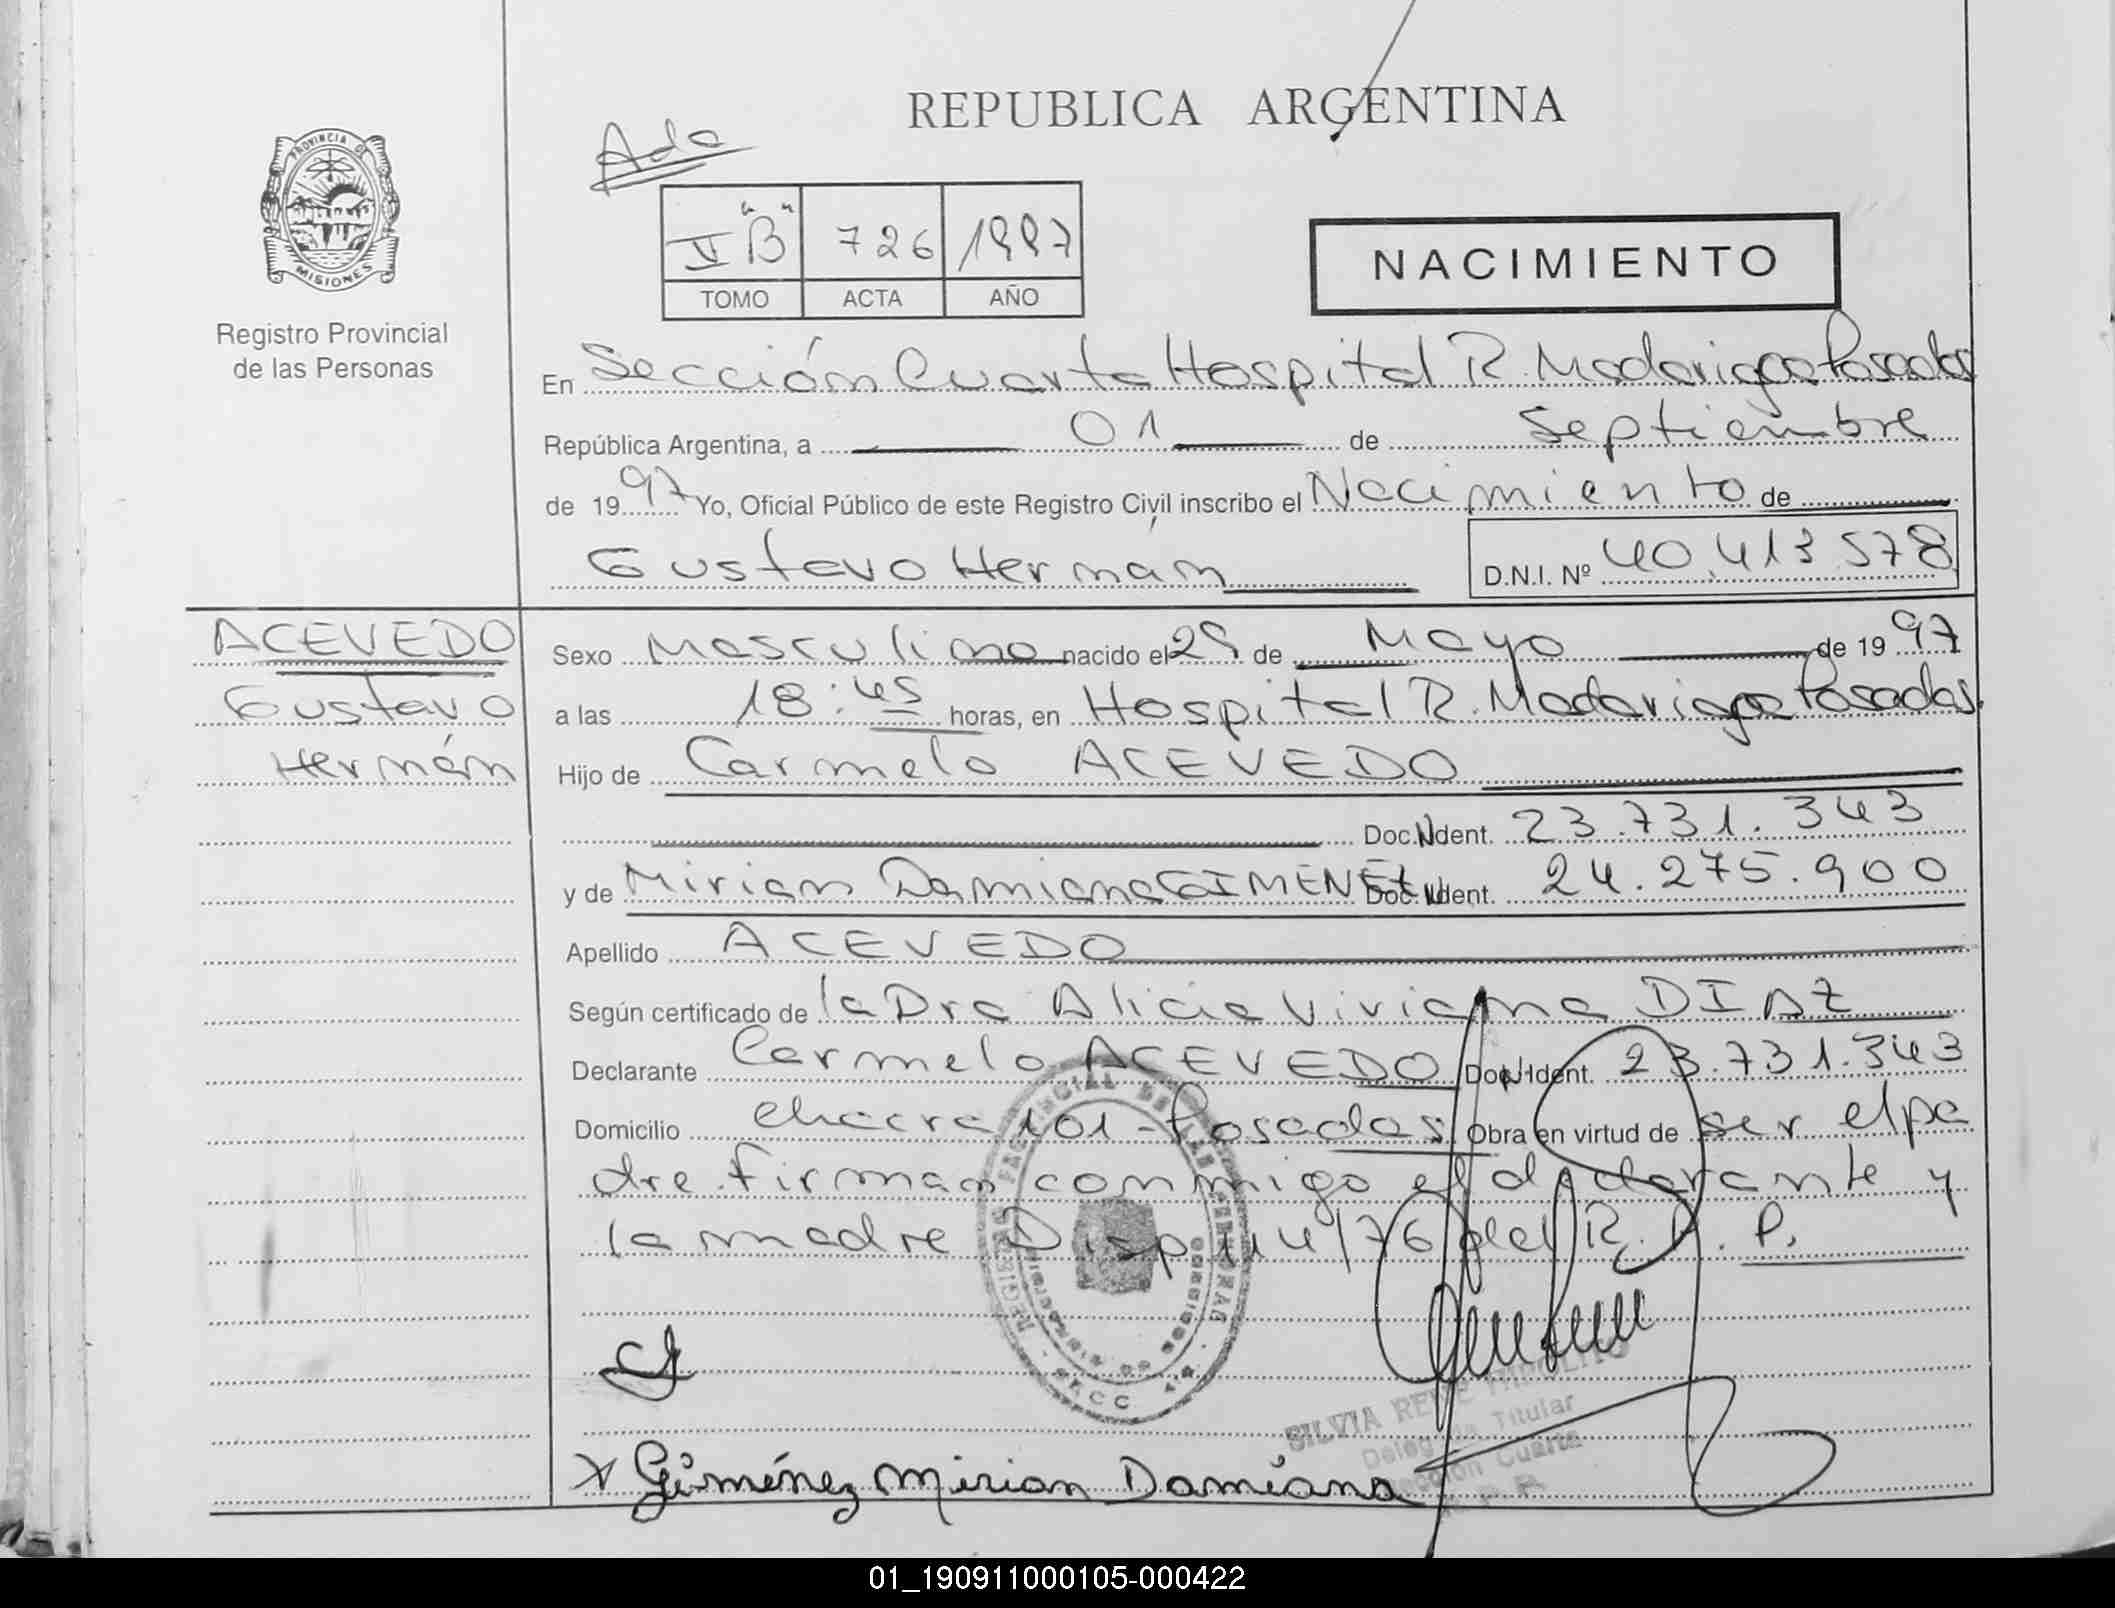 REPUBLICA ARGENTINA
Ada
PROVINCIA DE
MISIONES
Registro Provincial
de las Personas
V "B" 726 1997
TOMO ACTA AÑO
NACIMIENTO
En Sección Cuarta Hospital R. Madariaga Posadas
República Argentina, a 01 de Septiembre
de 1997 Yo, Oficial Público de este Registro Civil inscribo el Nacimiento de
Gustavo Hernán D.N.I. Nº 40.413.578
ACEVEDO
Gustavo
Hernán
Sexo Masculino nacido el 29 de Mayo de 1997
a las 18:45 horas, en Hospital R. Madariaga Posadas.
Hijo de Carmelo ACEVEDO
Doc. Ident. 23.731.343
y de Mirian Damiana GIMENEZ Doc. Ident. 24.275.900
Apellido ACEVEDO
Según certificado de la Dra Alicia Viviana DIAZ
Declarante Carmelo ACEVEDO Doc. Ident. 23.731.343
Domicilio chacra 101 - Posadas Obra en virtud de ser el pa
dre. firman conmigo el declarante y
la madre Disp 114/76 del R. P. P.
SILVIA RENE HIPOLITO
Delegada Titular
Sección Cuarta
R. P. P.
x Giménez Mirian Damiana
01_190911000105-000422